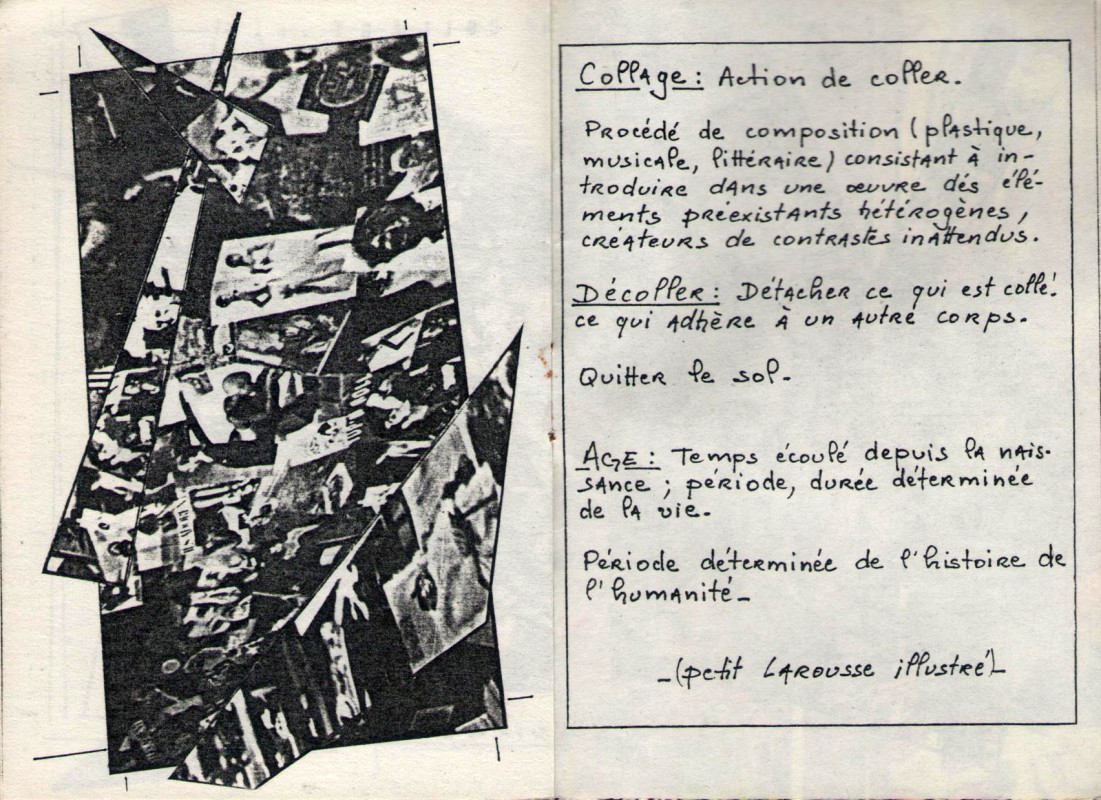 Collage : Action de coller.
Procédé de composition (plastique,
musicale, littéraire) consistant à in-
troduire dans une œuvre dés élé-
ments préexistants hétérogènes,
créateurs de contrastes inattendus.
Décoller : Détacher ce qui est collé.
ce qui adhère à un autre corps.
Quitter le sol.
AGE : Temps écoulé depuis la nais-
sance ; période, durée déterminée
de la vie.
Période déterminée de l'histoire de
l'humanité_
_(petit Larousse illustré)_